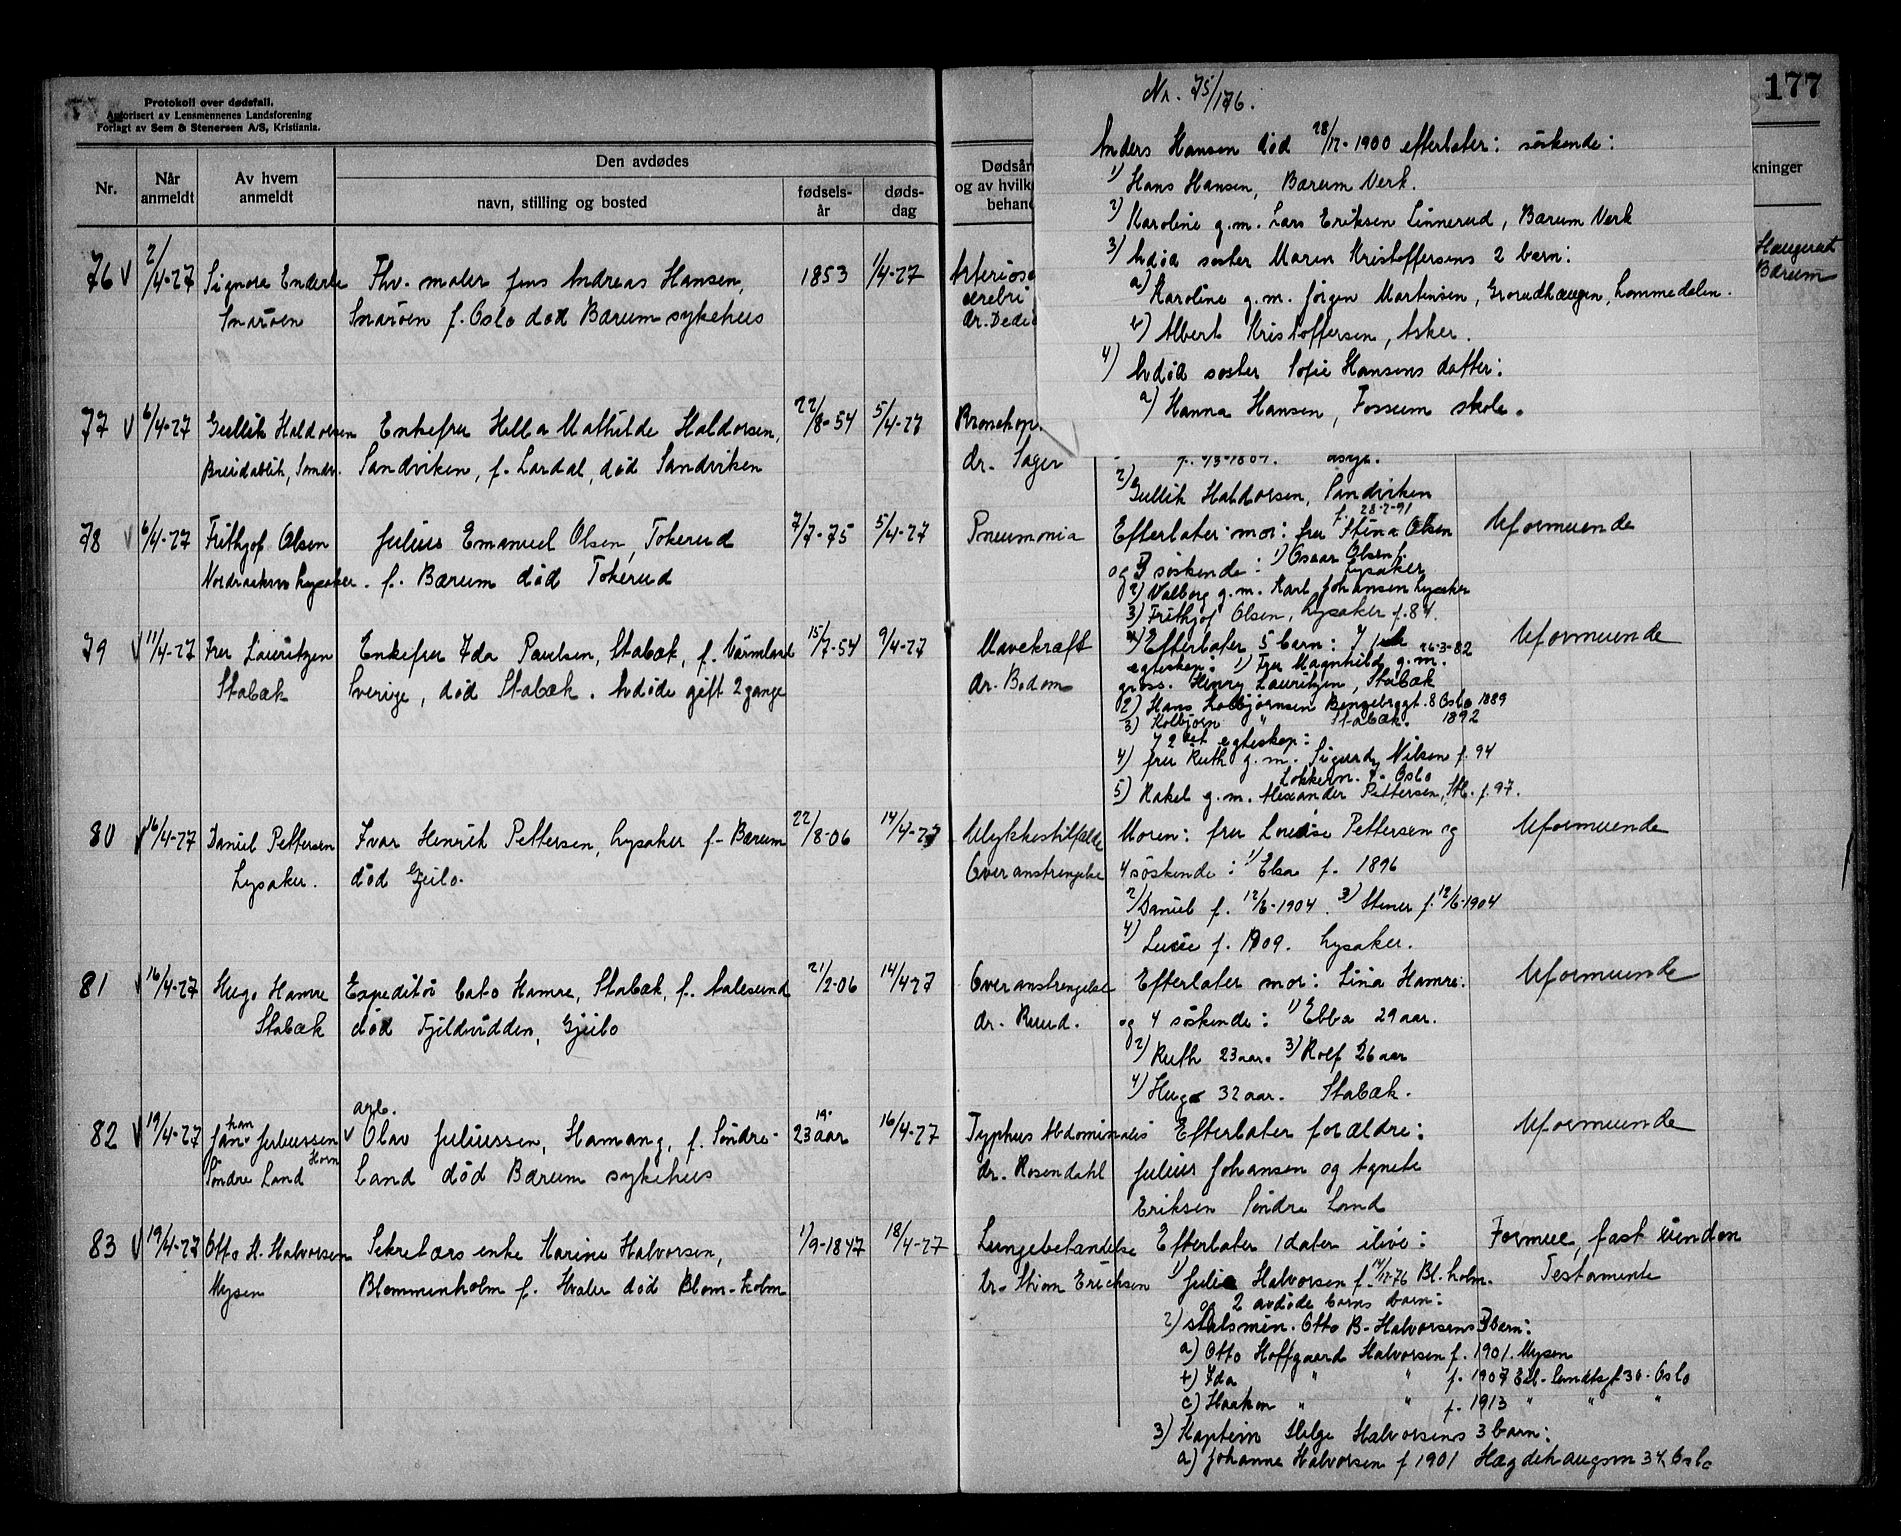 Protokoll over dødsfall.
Autorisert av Lensmennenes Landsforening
Forlagt av Sem & Stenersen A/S, Kristiania.
177
Nr.
Når anmeldt
Av hvem anmeldt
Den avdødes
navn, stilling og bosted
fødsels-år
døds-dag
Dødsår
og av hvilk
behand
kninger
Nr. 75/176.
Anders Hansen død 28/12-1900 efterlater: søskende:
1) Hans Hansen, Bærum Verk.
2) Karoline g.m. Lars Eriksen Linnerud, Bærum Verk
3) Avdød søster Maren Kristoffersens 2 barn:
a) Karoline g.m. Jørgen Martinsen, Grorudhaugen, Lommedalen.
b) Albert Kristoffersen, Asker.
4) Avdød søster Sofie Hansens datter:
a) Hanna Hansen, Fossum skole.
Haugerud
Bærum
76 v 2/4-27 Signora Enderle Fhv. maler Jens Andreas Hansen, 1853 1/4-27
Snarøen Snarøen f. Oslo død Bærum sykehus
cerebri
77 v 6/4-27 Gullik Haldorsen Enkefru Hella Mathilde Haldorsen, 22/8-54 5/4-27 Bronchop.
Breidablik, Sandv. Sandviken, f. Lardal, død Sandviken dr. Sager
2) Gullik Haldorsen, Sandviken
f. 28-2-91
78 v 6/4-27 Frithjof Olsen Julius Emanuel Olsen, Tokerud 7/7-75 5/4-27 Pneumonia Efterlater mor: fru Stina Olsen Uformuende
Lysaker. f. Bærum død Tokerud og 3 søskende: 1) Oscar Olsen f.
Lysaker
2) Valborg g.m. Karl Johansen Lysaker
3) Frithjof Olsen, Lysaker f. 84.
79 v 11/4-27 Fru Lauritzen Enkefru Ida Paulsen, Stabæk, f. Värmland 15/7-54 9/4-27 Mavekræft Efterlater 5 barn: I 1ste Uformuende
Stabæk Sverige, død Stabæk. Avdøde gift 2 gange dr. Bodom egteskap: 1) Fru Magnhild g.m. 26-3-82
gross. Henry Lauritzen, Stabæk
2) Hans Kolbjørnsen Bengebrygt. 8 Oslo 1889
3) Kolbjørn " Stabæk. 1892
I 2det egteskap:
4) fru Ruth g.m. Sigurd Nilsen f. 94
Oslo
5) Rakel g.m. Alexander Pettersen, Stb. f. 97.
80 v 16/4-27 Daniel Pettersen Ivar Henrik Pettersen, Lysaker f. Bærum 22/8-06 14/4-27 Ulykkestilfælde Moren: fru Louise Pettersen og Uformuende
Lysaker. død Gjeilo. Overanstrengelse 4 søskende: 1) Elsa f. 1896
2) Daniel f. 12/6-1904. 3) Stener f. 12/6-1904
4) Lucie f. 1909. Lysaker.
81 v 16/4-27 Hugo Hamre Expeditør Cato Hamre, Stabæk, f. Aalesund 21/2-06 14/4 27 Overanstrengelse Efterlater mor: Lina Hamre. Uformuende
Stabæk død Fjeldvidden, Gjeilo dr. Ruud. og 4 søskende: 1) Ebba 29 aar.
2) Ruth 23 aar. 3) Rolf 26 aar
4) Hugo 32 aar. Stabæk.
82 v 19/4-27 Jan Juliussen v arb. Olav Juliussen, Hamang, f. Søndre- 23 aar 16/4-27 Typhus Abdominalis Efterlater forældre: Uformuende
Søndre Land Land død Bærum sykehus dr. Rosendahl Julius Johansen og Agnete
Eriksen Søndre Land
83 v 19/4-27 Otto H. Halvorsen Sekretærs enke Karine Halvorsen, 1/9-1847 18/4-27 Lungebetændelse Efterlater 1 dater ilive: Formue, fast eiendom
Mysen Blommenholm f. Hvaler død Blom-holm Dr. Thiom Ericksen 1) Julie Halvorsen f. 14/12-76 Bl.holm. Testamente
og 2 avdøde barns barn:
2) statsmin. Otto B. Halvorsens 3 barn:
a) Otto Hoffgaard Halvorsen f. 1901. Mysen
b) Ida " " f. 1907 Eil. Sundtsgt 30. Oslo
c) Haakon " " f. 1913 " " "
3) Kaptein Helge Halvorsens 3 barn:
a) Johanne Halvorsen f 1901 Hægdehaugsvn 34, Oslo